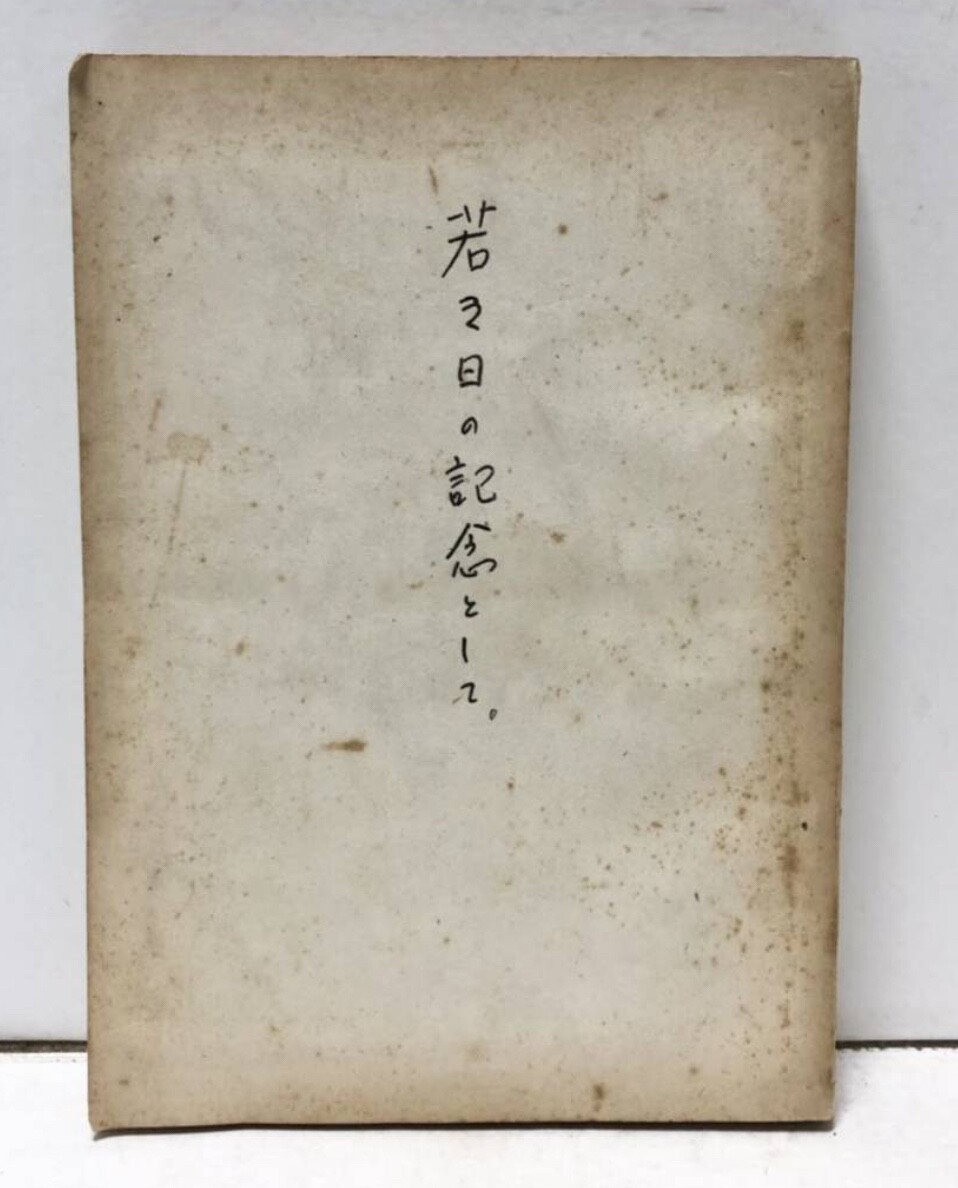 若き日の記念として。